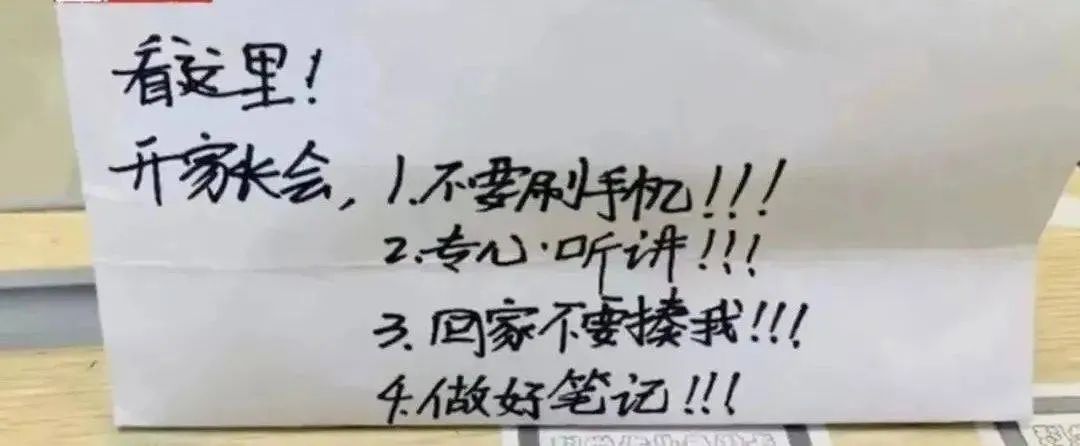 看这里!
开家长会, 1.不要刷手机!!!
2.专心·听讲!!!
3.回家不要揍我!!!
4.做好笔记!!!